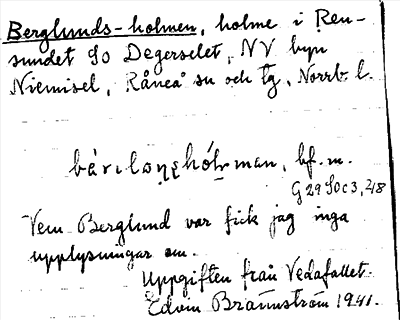 Berglunds-holmen, holme i Ren-
sundet SO Degerselet, NV byn
Niemisel, Råneå sn och tg, Norrb. l.
hólman, bf. m.
G 29 SO c 3, 2/8
Vem Berglund var fick jag inga
upplysningar om.
Uppgiften från Vedafallet.
Edvin Brännström 1941.